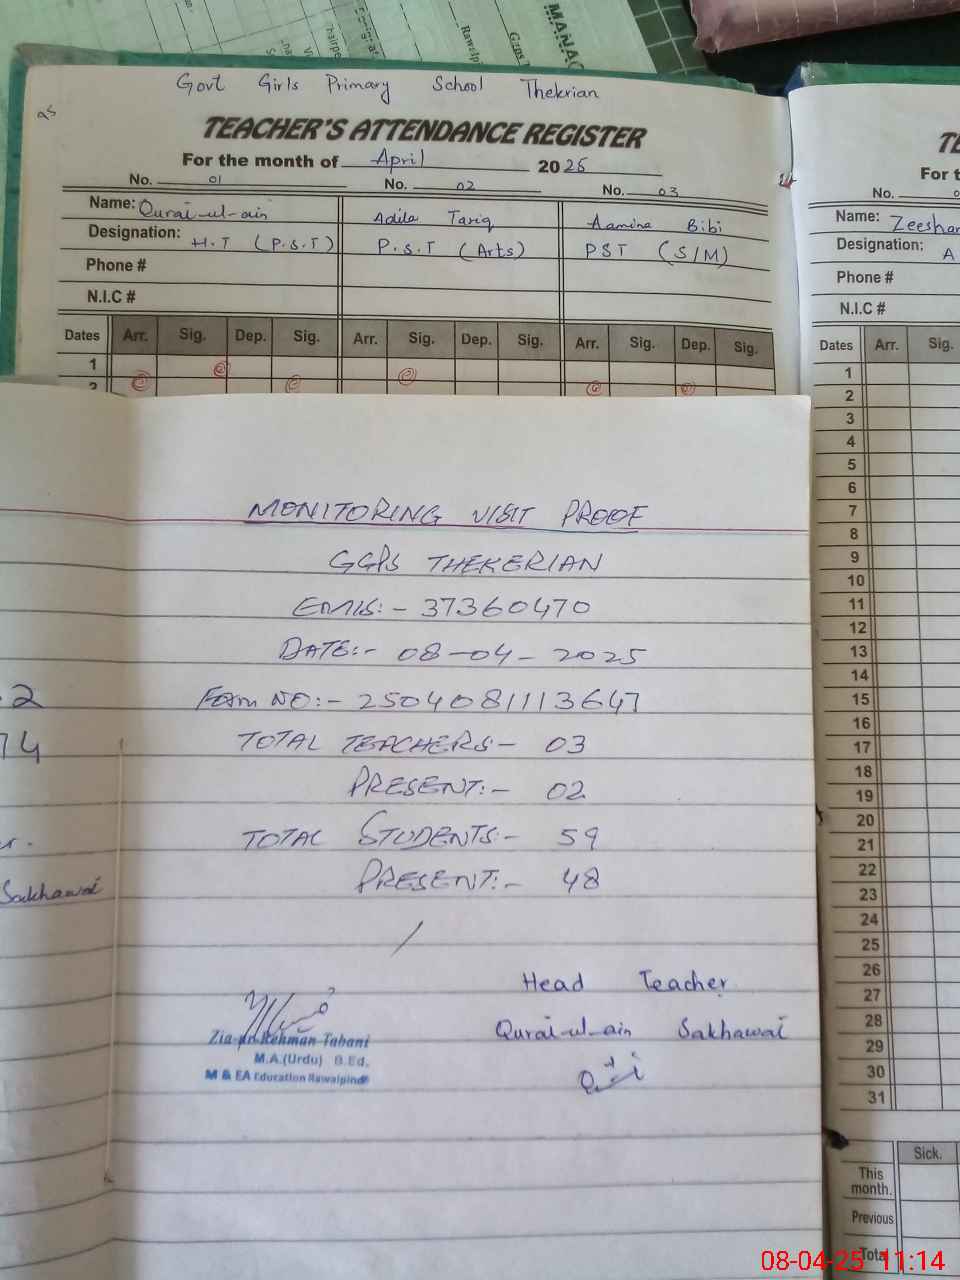 MANAG
Rawalp
Govt Girls Primary School Thekrian
TEACHER'S ATTENDANCE REGISTER
For the month of April 2025
No. 01 No. 02 No. 03
Name: Qurai-ul-ain Adila Tariq Aamina Bibi
Designation: H.T (P.S.T) P.S.T (Arts) PST (S/M)
Phone #
N.I.C #
Dates Arr. Sig. Dep. Sig. Arr. Sig. Dep. Sig. Arr. Sig. Dep. Sig.
1
2
TE
For t
No.
Name: Zeeshan
Designation: A
Phone #
N.I.C #
Dates Arr. Sig.
1
2
3
4
5
6
7
8
9
10
11
12
13
14
15
16
17
18
19
20
21
22
23
24
25
26
27
28
29
30
31
Sick.
This month.
Previous
Total
MONITORING VISIT PROOF
GGPS THEKERIAN
EMIS:- 37360470
DATE:- 08-04-2025
Form NO:- 2504081113647
TOTAL TEACHERS- 03
PRESENT:- 02
TOTAL STUDENTS:- 59
PRESENT:- 48
/
Head Teacher
Qurai-ul-ain Sakhawai
Zia-ur-Rehman Tabani
M.A.(Urdu) B.Ed.
M & EA Education Rawalpindi
.2
74
r.
Sakhawai
08-04-25 11:14